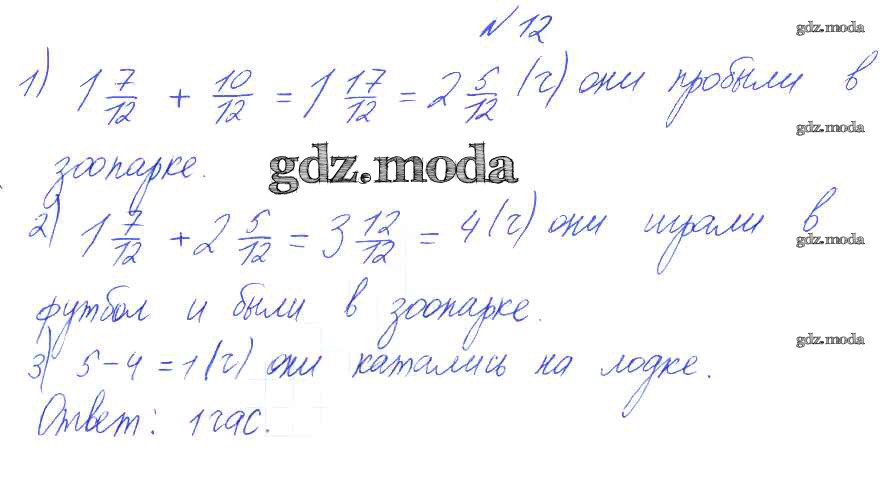 № 12
gdz.moda
1) 1 7/12 + 10/12 = 1 17/12 = 2 5/12 (ч) они пробыли в
gdz.moda
зоопарке.
gdz.moda
2) 1 7/12 + 2 5/12 = 3 12/12 = 4 (ч) они играли в
gdz.moda
футбол и были в зоопарке.
gdz.moda
3) 5 - 4 = 1 (ч) они катались на лодке.
Ответ: 1 час.